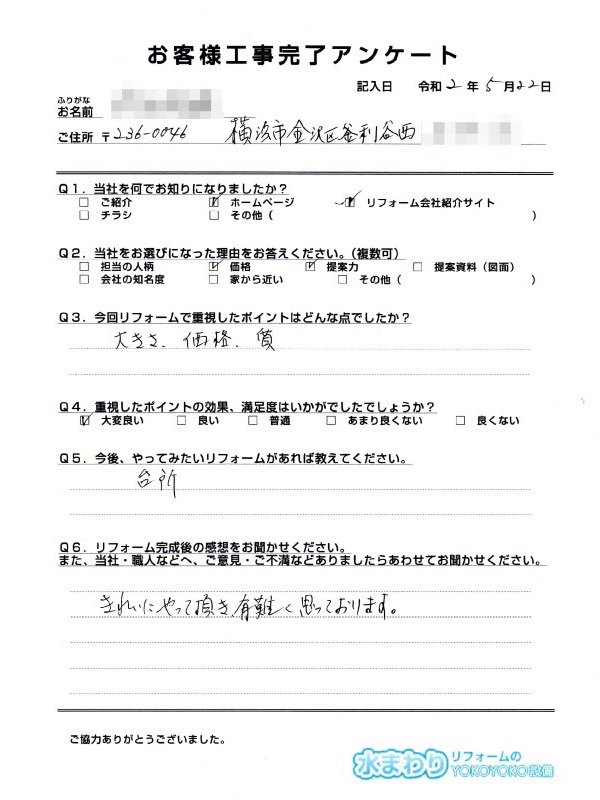 お客様工事完了アンケート
記入日 令和 2 年 5 月 22 日
ふりがな
お名前
ご住所 〒236-0046 横浜市金沢区釜利谷西
Q1．当社を何でお知りになりましたか？
□ ご紹介 ☑ ホームページ ☑ リフォーム会社紹介サイト
□ チラシ □ その他（ ）
Q2．当社をお選びになった理由をお答えください。（複数可）
□ 担当の人柄 ☑ 価格 ☑ 提案力 □ 提案資料（図面）
□ 会社の知名度 □ 家から近い □ その他（ ）
Q3．今回リフォームで重視したポイントはどんな点でしたか？
大きさ、価格、質
Q4．重視したポイントの効果、満足度はいかがでしたでしょうか？
☑ 大変良い □ 良い □ 普通 □ あまり良くない □ 良くない
Q5．今後、やってみたいリフォームがあれば教えてください。
台所
Q6．リフォーム完成後の感想をお聞かせください。
また、当社・職人などへ、ご意見・ご不満などありましたらあわせてお聞かせください。
きれいにやって頂き、有難く思っております。
ご協力ありがとうございました。
水まわり リフォームの YOKOYOKO設備